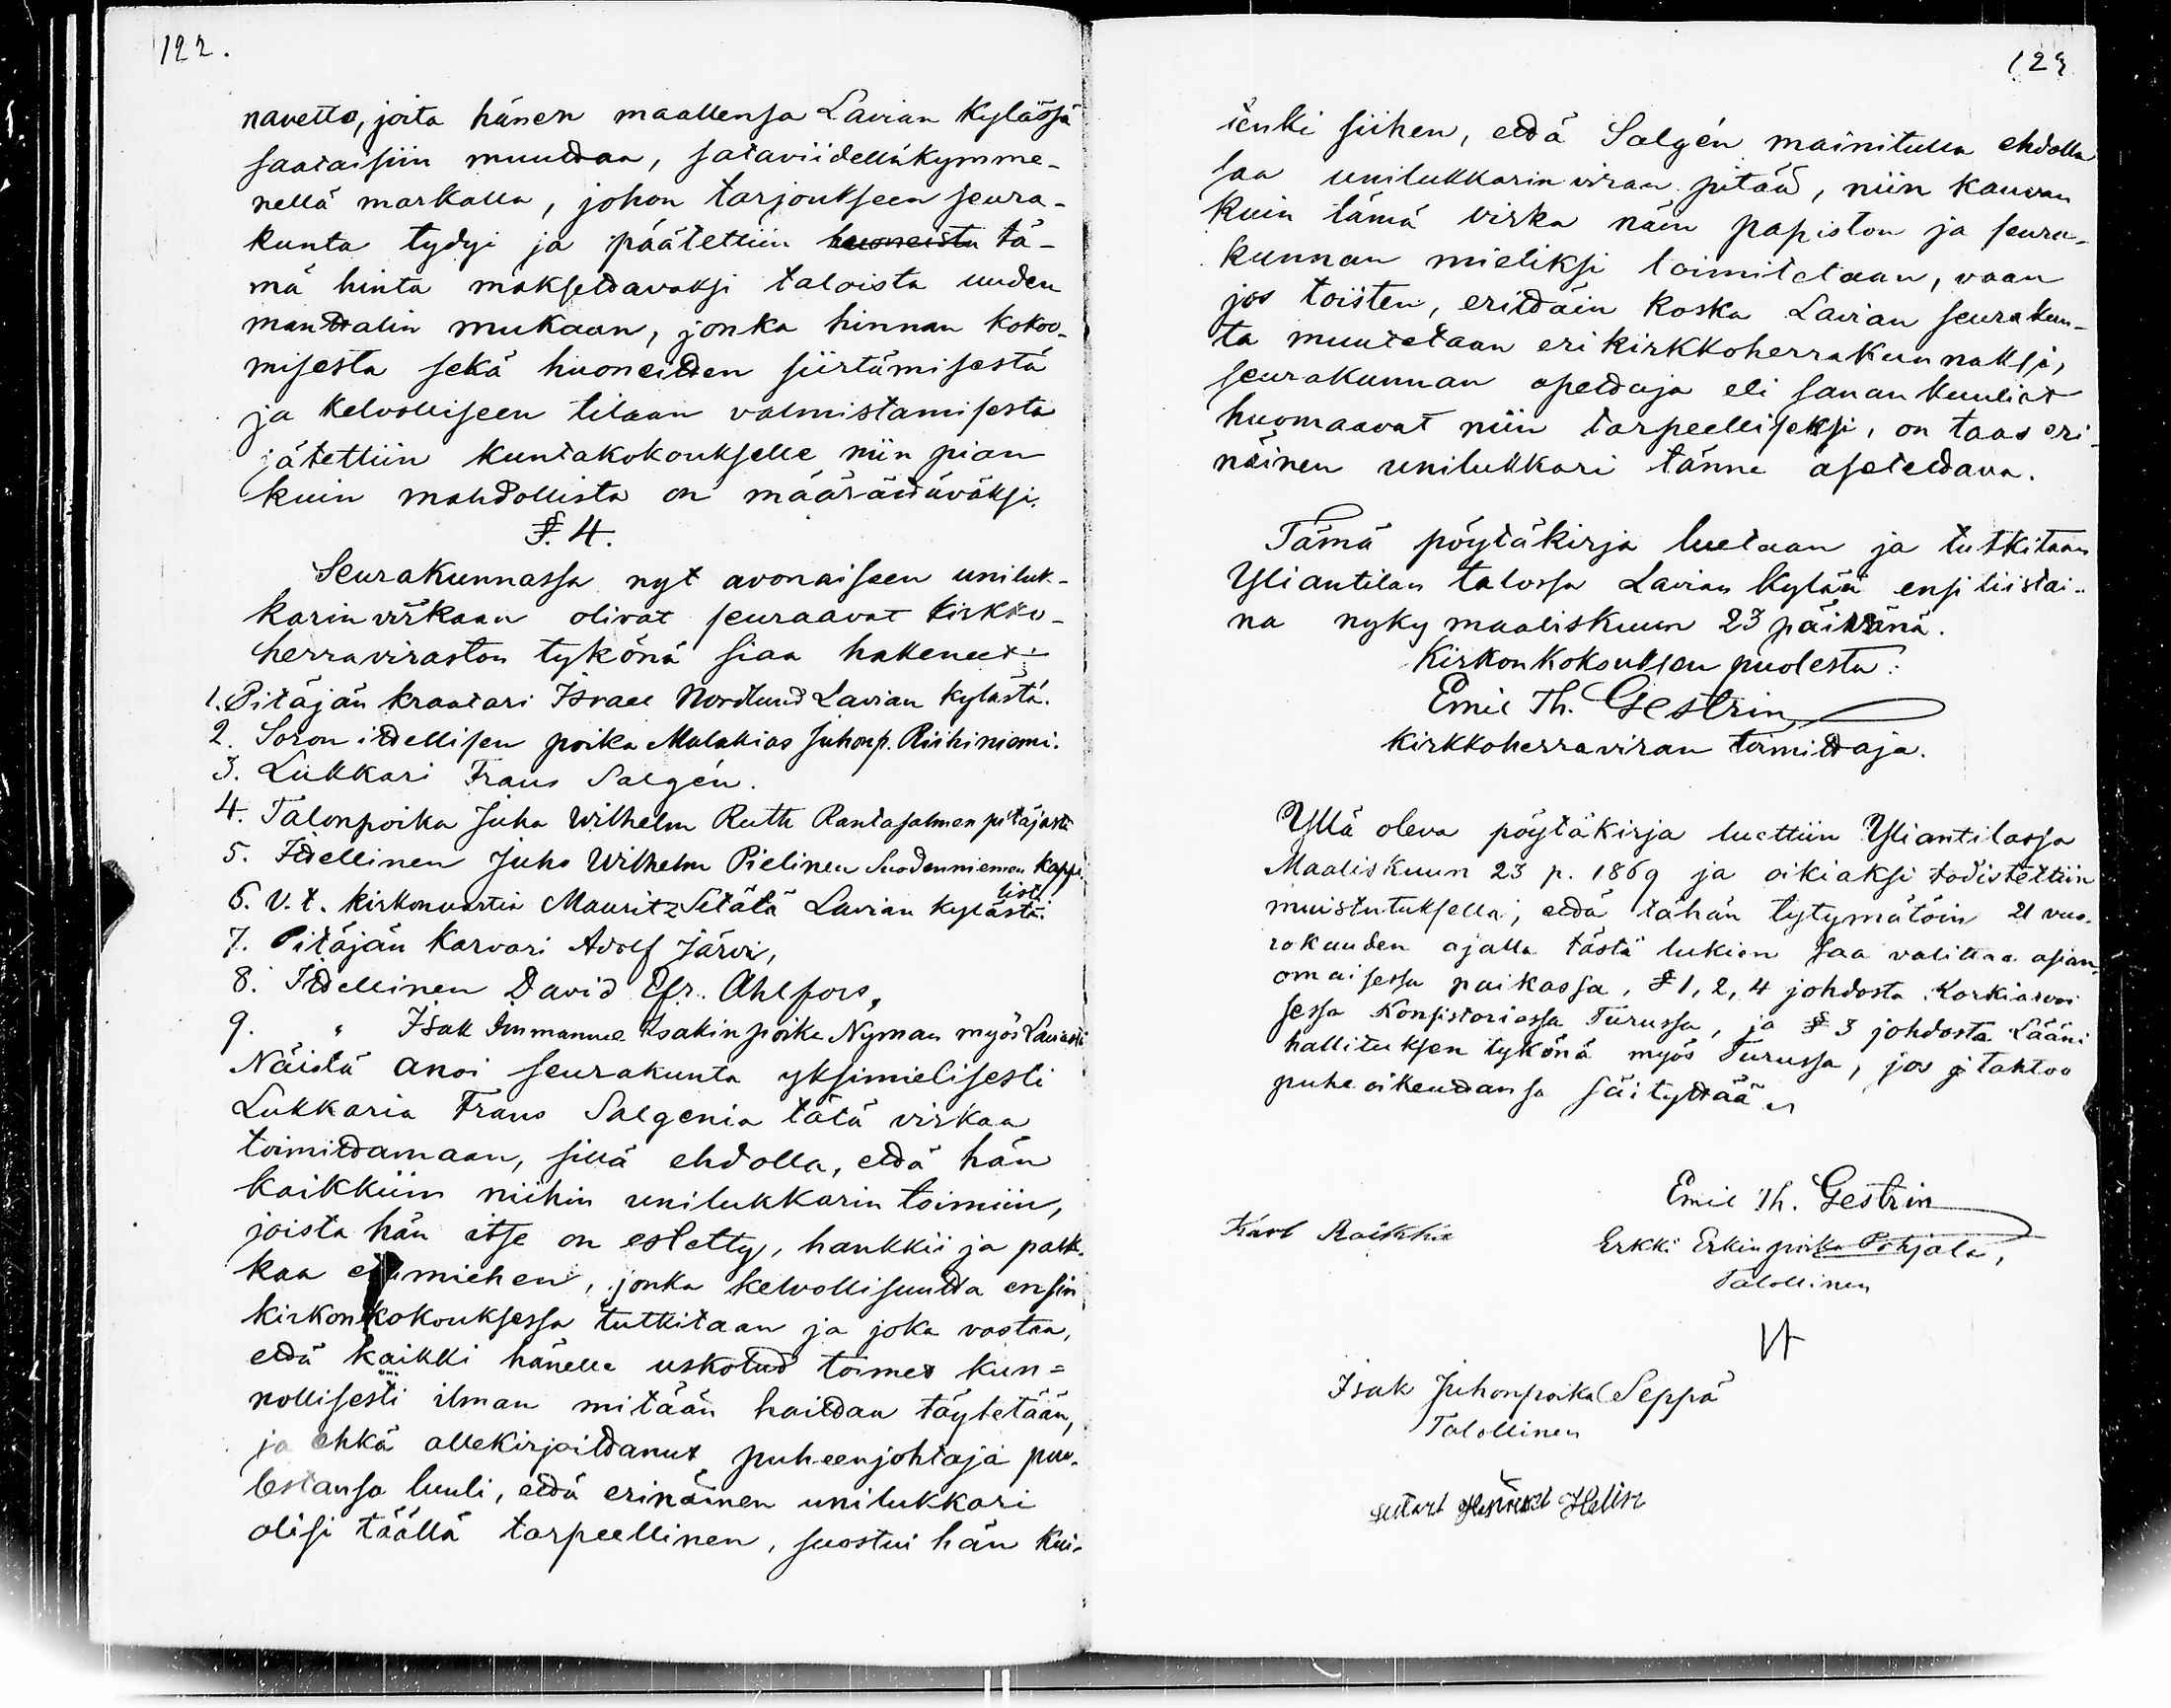 122.
navetto, joita hänen maallensa Lavian kylässä
saataisiin muuttaa, sataviidelläkymme-
nellä markalla, johon tarjoukseen seura-
kunta tydyi ja päätettiin huoneista tä-
mä hinta maksettavaksi taloista uuden
manttalin mukaan, jonka hinnan kokoo-
misesta sekä huoneitten siirtämisestä
ja kelvolliseen tilaan valmistamisesta
jätettiin kuntakokoukselle niin pian
kuin mahdollista on määrättäväksi.
§. 4.
Seurakunnassa nyt avonaiseen uniluk-
karin virkaan olivat seuraavat kirkko-
herraviraston tykönä siaa hakeneet:
1. Pitäjän kraatari Israel Nordlund Lavian kylästä.
2. Soron itellisen poika Malakias Juhonp. Riihiniemi.
3. Lukkari Frans Salgén.
4. Talonpoika Juha Wilhelm Ruth Rantasalmen pitäjästä
5. Itellinen Juho Wilhelm Pielinen Suodenniemen kappe-
list.
6. V. t. kirkonvartia Mauritz Setälä Lavian kylästä.
7. Pitäjän karvari Adolf Järvi,
8. Itellinen David Efr. Ahlfors,
9. " Isak Immanuel Isakin poika Nyman myös Laviasta
Näistä anoi seurakunta yksimielisesti
Lukkaria Frans Salgenia tätä virkaa
toimittamaan, sillä ehdolla, että hän
kaikkiin niihin unilukkarin toimiin,
joista hän itse on estetty, hankkii ja palk-
kaa miehen, jonka kelvollisuutta ensin
kirkonkokouksessa tutkitaan ja joka vastaa,
että kaikki hänelle uskotud toimet kun=
nollisesti ilman mitään haittaa täytetään,
ja ehkä allekirjoittanut puheenjohtaja puo-
lestansa luuli, että erinäinen unilukkari
olisi täällä tarpeellinen, suostui hän kui-
123
tenki siihen, että Salgén mainitulla ehdolla
saa unilukkarin viran pitää, niin kauvan
kuin tämä virka näin papiston ja seura-
kunnan mieliksi toimitetaan, vaan
jos toisten, erittäin koska Lavian seurakun-
ta muutetaan eri kirkkoherrakunnaksi,
seurakunnan opettaja eli sanan kuuliat
huomaavat niin tarpeelliseksi, on taas eri-
näinen unilukkari tänne asetettava.
Tämä pöytäkirja luetaan ja tutkitaan
Yliantilan talossa Lavian kylää ensi tiistai-
na nyky maaliskuun 23 päivänä.
Kirkonkokouksen puolesta:
Emil Th. Gestrin
kirkkoherraviran toimittaja.
Yllä oleva pöytäkirja luettiin Yliantilassa
Maaliskuun 23 p. 1869 ja oikiaksi todistettiin
muistutuksella, että tähän tytymätöin 21 vuo-
rokauden ajalla tästä lukien saa valittaa asian-
omaisessa paikassa, § 1, 2, 4 johdosta Korkiarvoi
sessa Konsistoriossa Turussa, ja § 3 johdosta Lääni
hallituksen tykönä myös Turussa, jos tahtoo
puhe oikeuttansa säityttää
Emil Th. Gestrin
Karl
Erkki Erkinpoika Pohjala,
Talollinen
Isak Juhonpoika Seppä
Talollinen
Helin